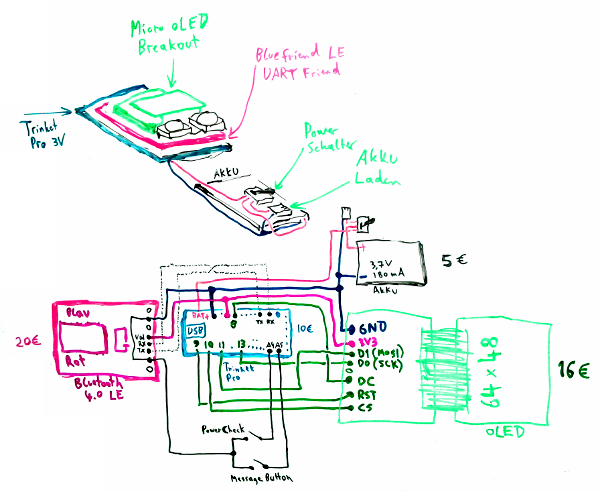 Micro oLED
Breakout
Bluefriend LE
UART Friend
Trinket
Pro 3V
Power
Schalter
AKKU
Laden
AKKU
3,7V
180mA
AKKU
5€
BLau
Rot
20€
Bluetooth
4.0 LE
BAT+
8
TX RX
USB
10€
9 10 11 13...
A4 A5
Trinket
Pro
GND
3V3
D1 (MOSI)
D0 (SCK)
DC
RST
CS
64 x 48
16€
oLED
PowerCheck
Message Button